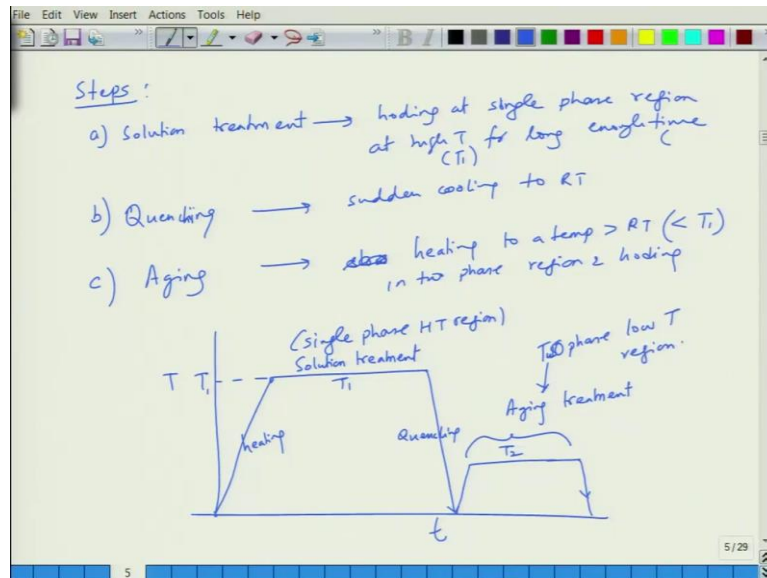 File Edit View Insert Actions Tools Help
B I
Steps :
a) Solution treatment → hoding at single phase region
at high T for long enough time
(T₁)
b) Quenching → sudden cooling to RT
c) Aging → heating to a temp > RT (< T₁)
in two phase region & hoding
(single phase HT region)
Solution treatment
T T₁ T₁
heating
Quenching
Two phase low T
region.
Aging treatment
T₂
t
5/29
5